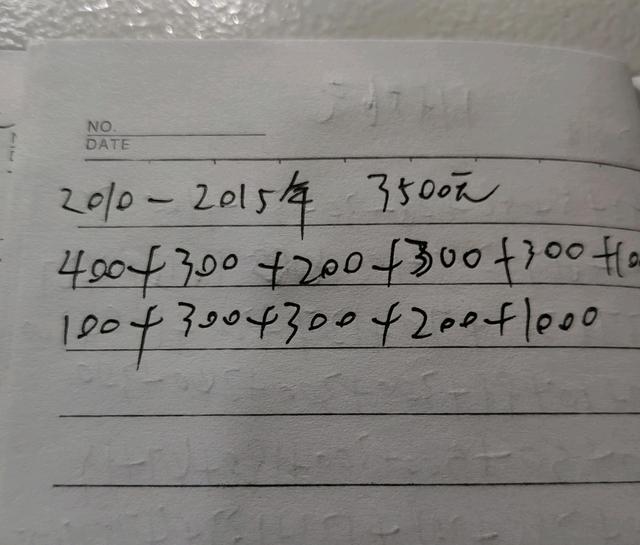 NO.
DATE
2010-2015年 3500元
400+300+200+300+300+10
100+300+300+200+1000